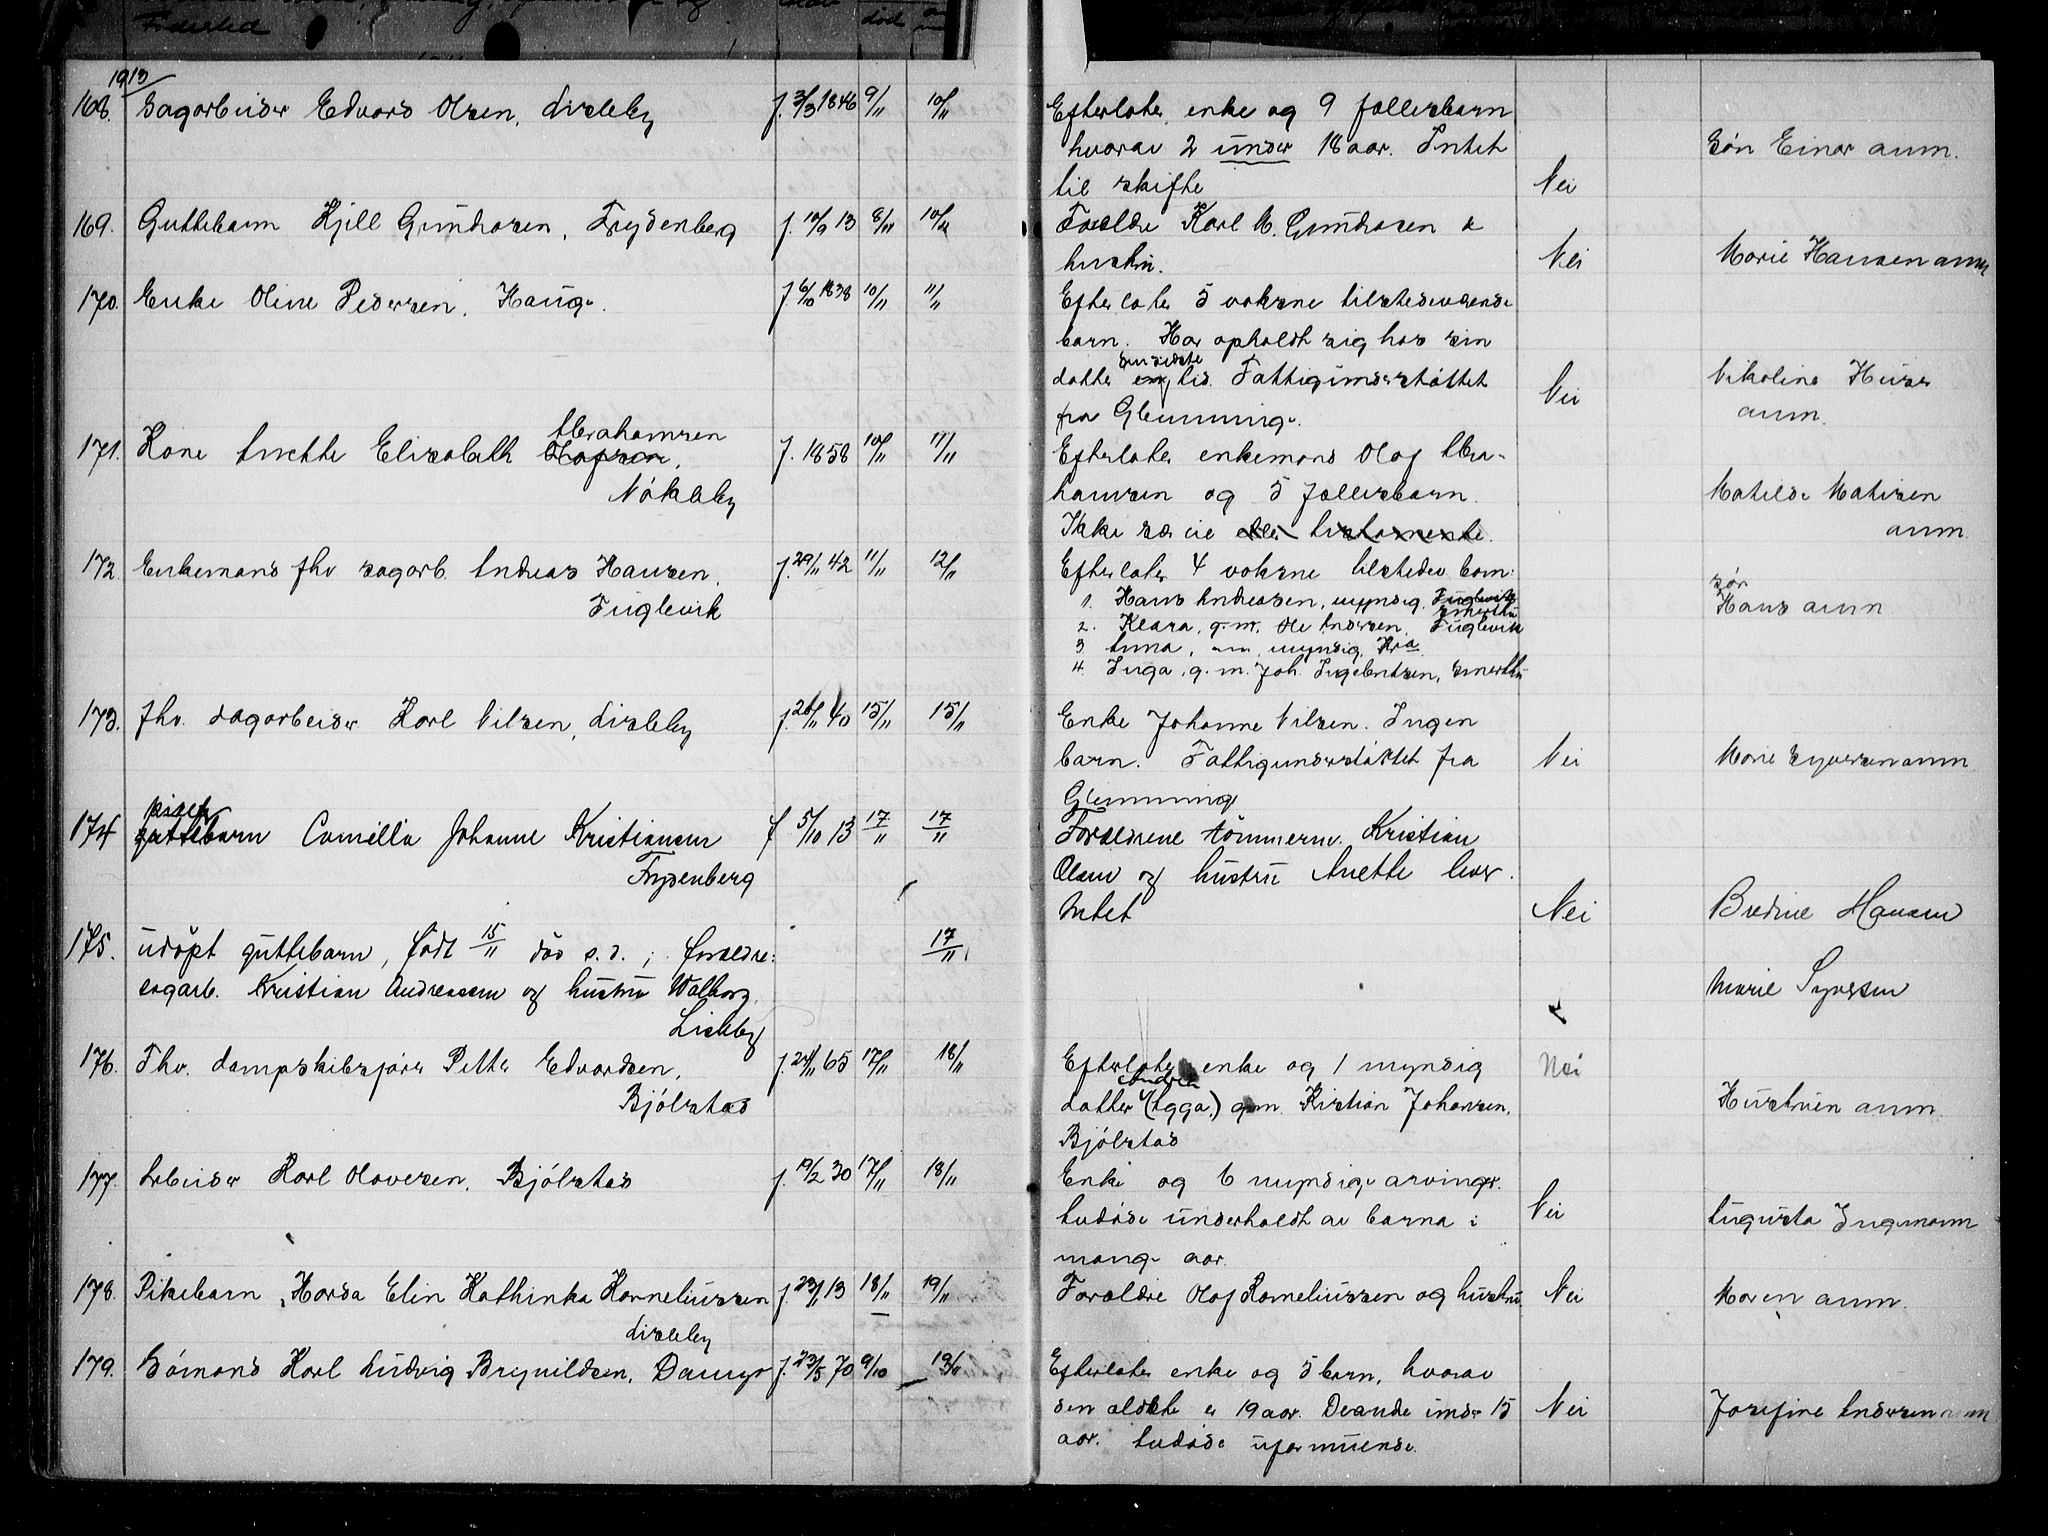 Fødested
død
1913
168. Sagarbeider Edvard Olsen, Lisleby f. 3/3 1846 9/11 10/11 Efterlater enke og 9 fællesbarn
hvorav 2 under 18 aar. Intet Søn Einar anm.
til skifte Nei
169. Guttebarn Kjell Gundersen, Frydenberg f. 10/9 13 8/11 10/11 Forældre Karl M. Gundersen &
hustru. Nei Marie Hansen anm
170. Enke Oline Pedersen, Hauge. f. 6/10 1838 10/11 11/11 Efterlater 5 voksne tilstedeværende
barn. Har opholdt sig hos sin
den sidste
datter tid. Fattigunderstøttet Nei Nikoline Huser
fra Glemminge. anm.
Abrahamsen
171. Kone Anette Elisabeth Olafsen, f. 1858 10/11 11/11 Efterlater enkemand Olaf Abra-
Nøkleby hamsen og 5 fællesbarn. Matilde Matisen
Ikke særeie eller testamente. anm.
172. Enkemand fhv sagarb. Andreas Hansen, f. 29/11 42 11/11 12/11 Efterlater 4 voksne tilstedev. barn:
Fuglevik 1. Hans Andreasen, myndig, Fuglevik søn
Smertu Hans anm
2. Klara, g.m. Ole Andersen, Fuglevik
3 Anna, myndig, Kra
4. Inga, g.m. Joh. Ingebretsen, Smertu
173. fhv. dagarbeider Karl Nilsen, Lisleby f. 26/11 40 15/11 15/11 Enke Johanne Nilsen. Ingen
barn. Fattigunderstøttet fra Nei Marie Syversen anm
Glemminge
pike
174 guttebarn Camilla Johanne Kristiansen f 5/10 13 17/11 17/11 Forældrene tømmerm. Kristian
Frydenberg Olsen og hustru Anette lever.
Intet Nei Bredine Hansen
175. udøpt guttebarn, født 15/11 død s.d.; forældre: 17/11
sagarb. Kristian Andreassen og hustru Walborg, Marie Syversen
Lisleby
176. Fhv. dampskibsfører Petter Edvardsen, f. 24/11 65 17/11 18/11 Efterlater enke og 1 myndig Nei
Andrea
Bjølstad datter (Agga) gm. Kristian Johansen, Hustruen anm.
Bjølstad
177. Arbeider Karl Olavesen, Bjølstad f. 19/2 30 17/11 18/11 Enke og 6 myndige arvinger.
Avdøde underholdt av barna i Nei Augusta Ingmann
mange aar.
178. Pikebarn, Harda Elin Kathinka Korneliussen f. 23/11 13 18/11 19/11 Forældre Olaf Korneliussen og hustru Nei Maren anm.
Lisleby
179. Sømand Karl Ludvig Brynildsen, Damyr f. 23/5 70 9/10 19/11 Efterlater enke og 5 barn, hvorav
den ældste er 19 aar. De andre under 15 Nei Josefine Andersen anm
aar. Avdøde uformuende.